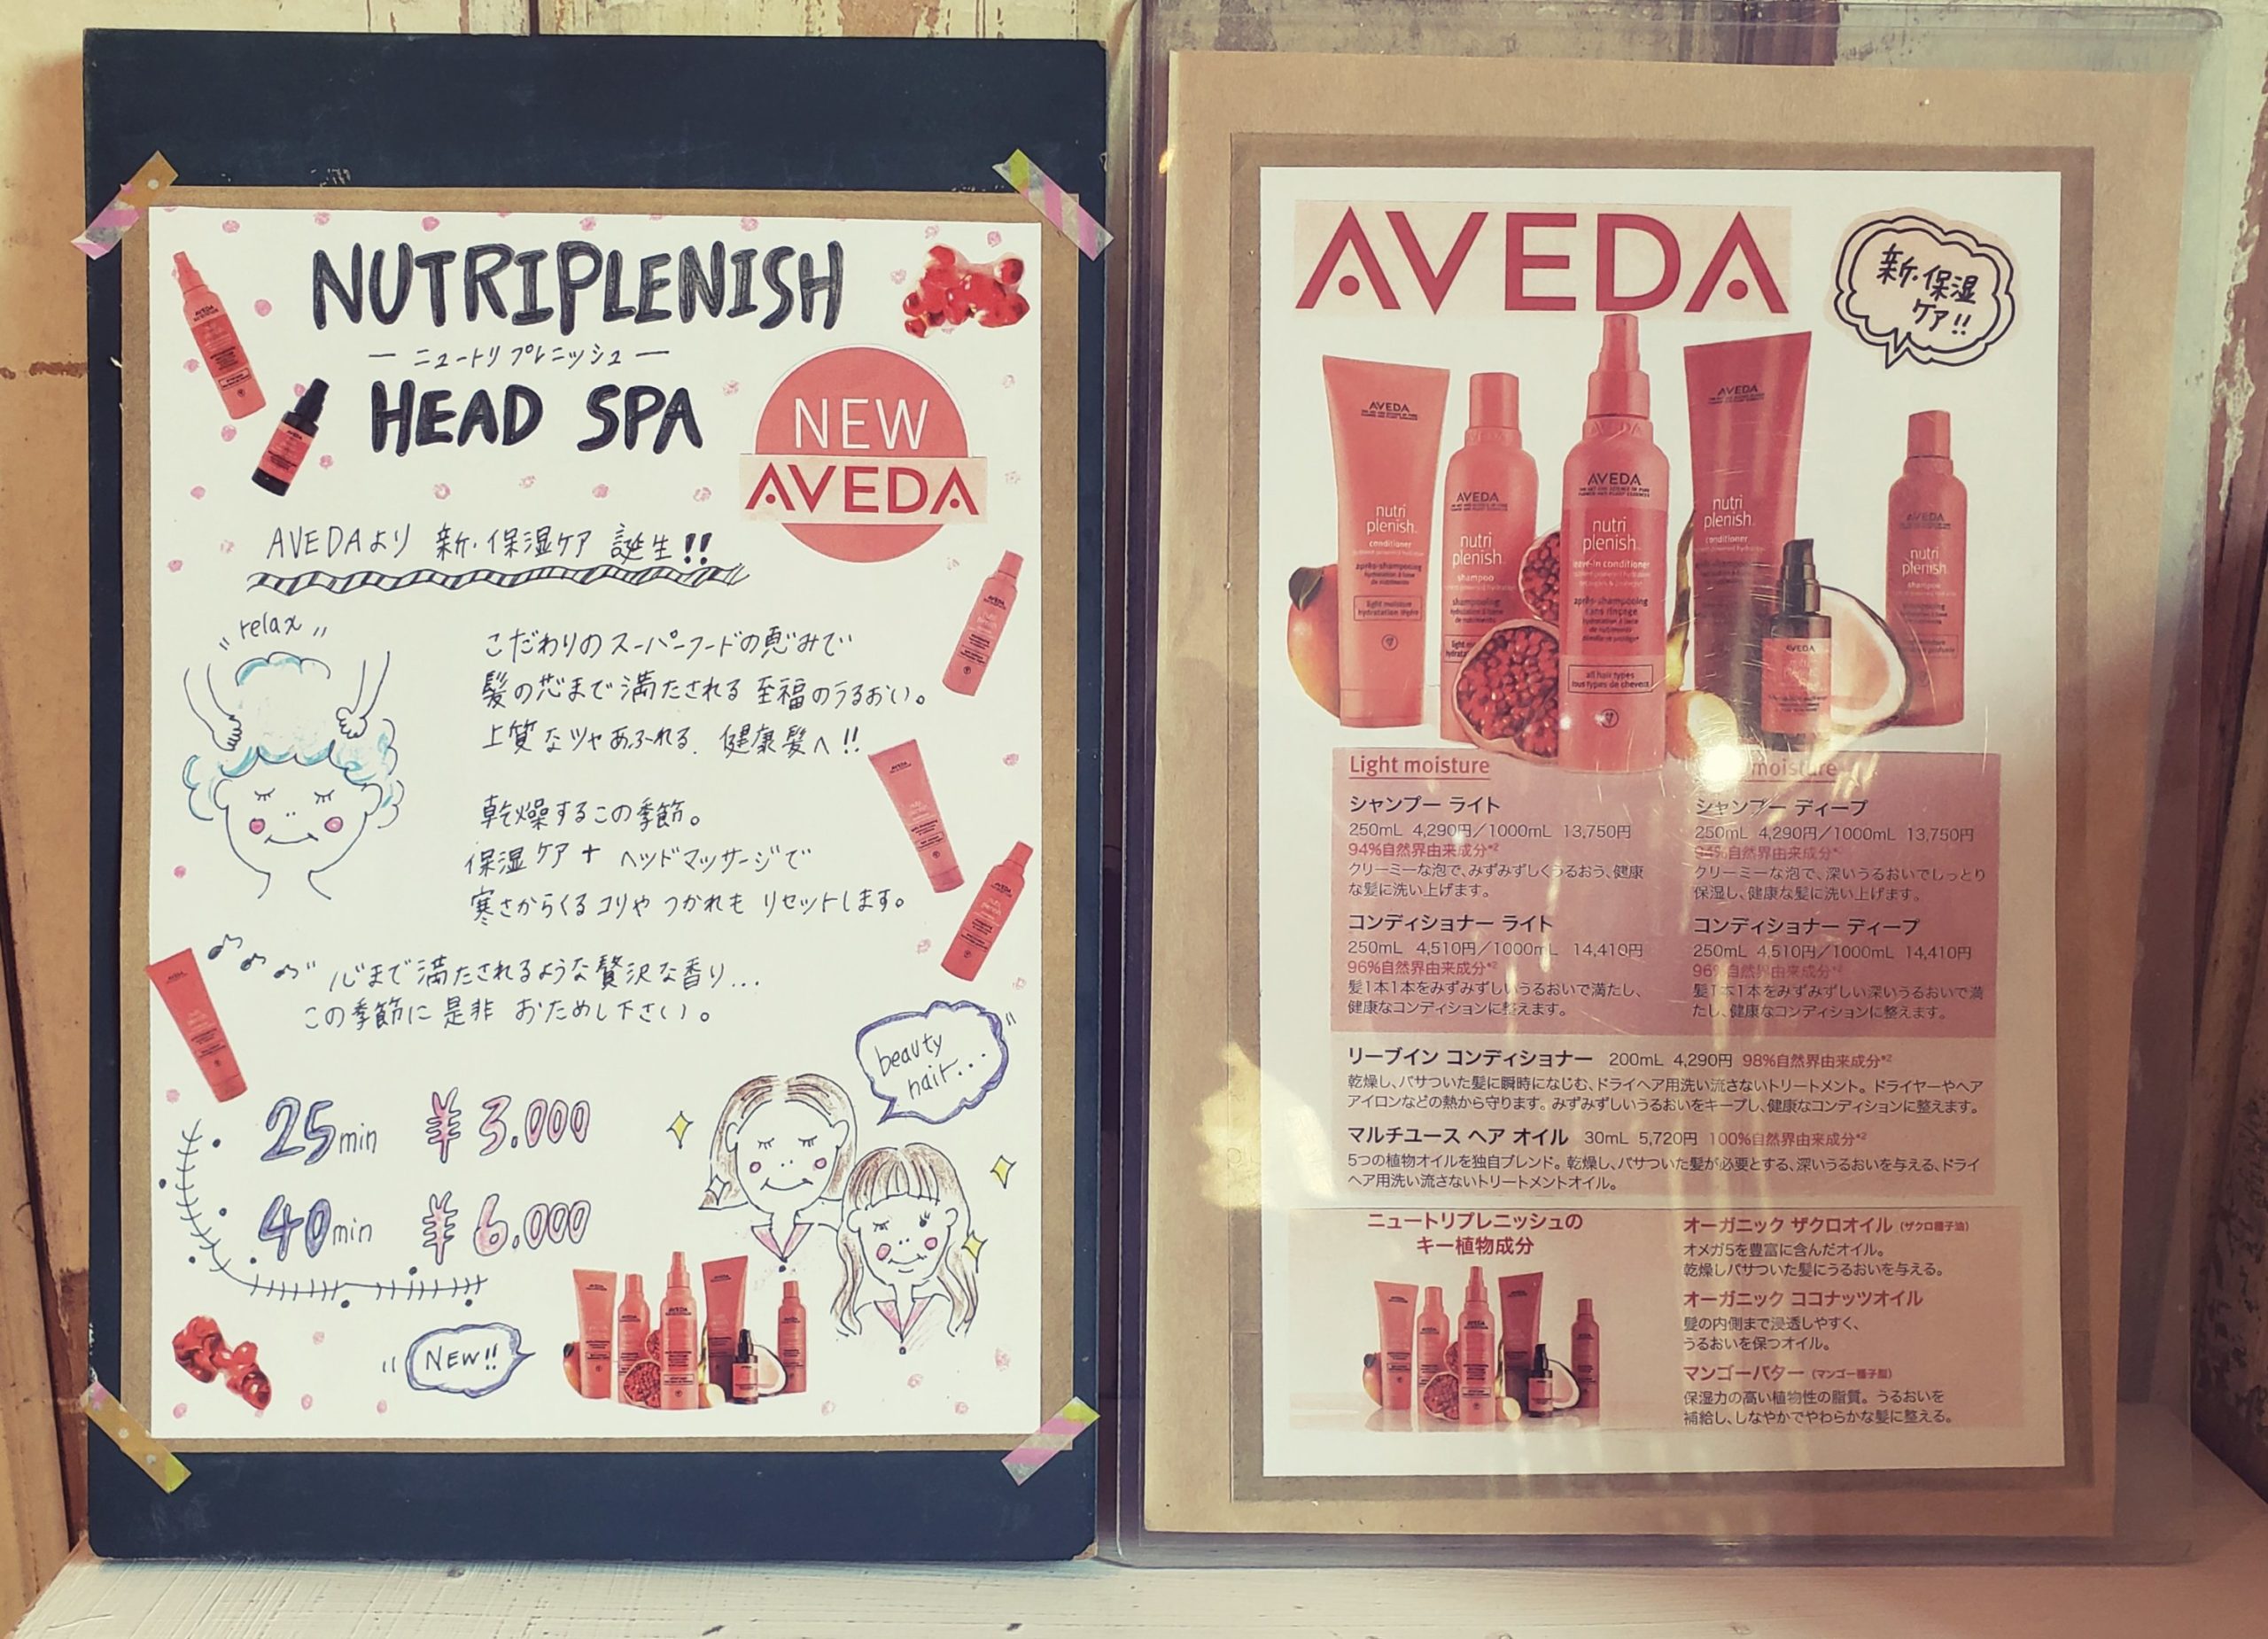 NUTRIPLENISH
ー ニュートリプレニッシュ ー
HEAD SPA
NEW
AVEDA
AVEDAより 新・保湿ケア 誕生!!
relax
こだわりのスーパーフードの恵みで
髪の芯まで満たされる 至福のうるおい。
上質なツヤあふれる、健康髪へ!!
乾燥するこの季節。
保湿ケア + ヘッドマッサージで
寒さからくるコリや つかれも リセットします。
心まで満たされるような贅沢な香り...
この季節に是非 おためし下さい。
25min ¥3.000
40min ¥6.000
beauty
hair...
NEW!!
AVEDA
新・保湿
ケア!!
AVEDA
nutri
plenish
conditioner
après-shampooing
light moisture
hydratation légère
AVEDA
nutri
plenish
shampoo
shampooing
AVEDA
nutri
plenish
leave-in conditioner
après-shampooing
sans rinçage
all hair types
tous types de cheveux
AVEDA
nutri
plenish
conditioner
AVEDA
AVEDA
nutri
plenish
shampoo
Light moisture
シャンプー ライト
250mL 4,290円／1000mL 13,750円
94%自然界由来成分*2
クリーミーな泡で、みずみずしくうるおう、健康
な髪に洗い上げます。
コンディショナー ライト
250mL 4,510円／1000mL 14,410円
96%自然界由来成分*2
髪1本1本をみずみずしいうるおいで満たし、
健康なコンディションに整えます。
moisture
シャンプー ディープ
250mL 4,290円／1000mL 13,750円
94%自然界由来成分*2
クリーミーな泡で、深いうるおいでしっとり
保湿し、健康な髪に洗い上げます。
コンディショナー ディープ
250mL 4,510円／1000mL 14,410円
96%自然界由来成分*2
髪1本1本をみずみずしい深いうるおいで満
たし、健康なコンディションに整えます。
リーブイン コンディショナー 200mL 4,290円 98%自然界由来成分*2
乾燥し、パサついた髪に瞬時になじむ、ドライヘア用洗い流さないトリートメント。ドライヤーやヘア
アイロンなどの熱から守ります。みずみずしいうるおいをキープし、健康なコンディションに整えます。
マルチユース ヘア オイル 30mL 5,720円 100%自然界由来成分*2
5つの植物オイルを独自ブレンド。乾燥し、パサついた髪が必要とする、深いうるおいを与える、ドライ
ヘア用洗い流さないトリートメントオイル。
ニュートリプレニッシュの
キー植物成分
オーガニック ザクロオイル（ザクロ種子油）
オメガ5を豊富に含んだオイル。
乾燥しパサついた髪にうるおいを与える。
オーガニック ココナッツオイル
髪の内側まで浸透しやすく、
うるおいを保つオイル。
マンゴーバター（マンゴー種子脂）
保湿力の高い植物性の脂質。うるおいを
補給し、しなやかでやわらかな髪に整える。